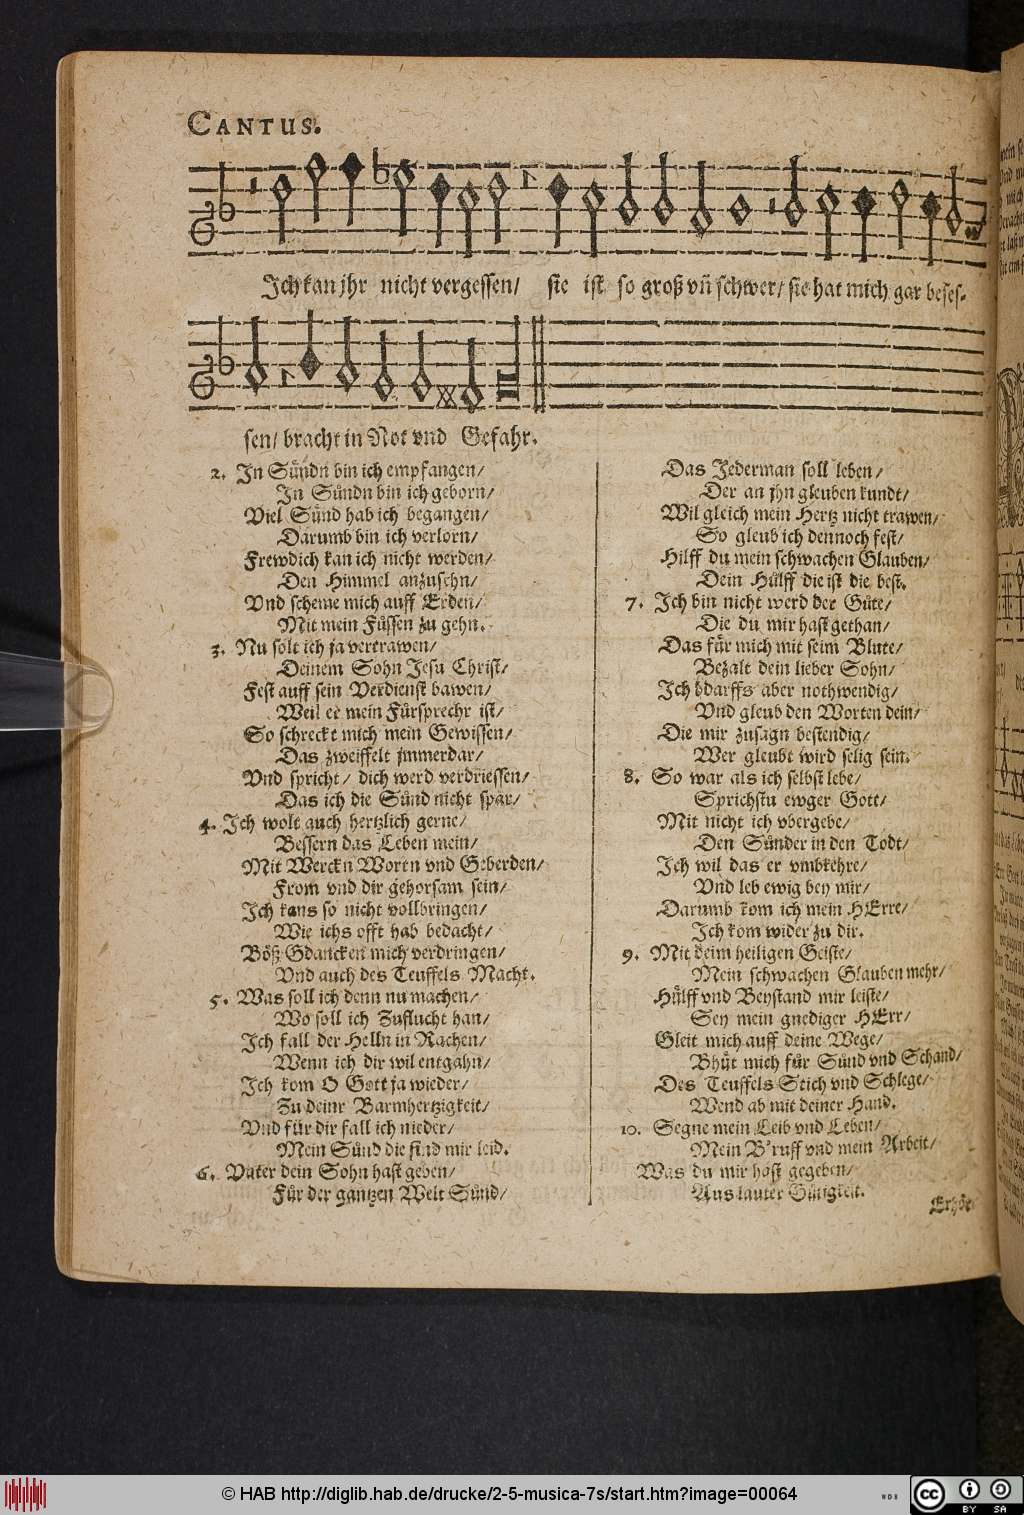 CANTUS.
Ich kan jhr nicht vergessen/ sie ist so groß vñ schwer/ sie hat mich gar beses-
sen/ bracht in Not vnd Gefahr.
2. In Sündn bin ich empfangen/
In Sündn bin ich geborn/
Viel Sünd hab ich begangen/
Darumb bin ich verlorn/
Frewdich kan ich nicht werden/
Den Himmel anzusehn/
Vnd scheme mich auff Erden/
Mit mein Füssen zu gehn.
3. Nu solt ich ja vertrawen/
Deinem Sohn Jesu Christ/
Fest auff sein Verdienst bawen/
Weil er mein Fürsprechr ist/
So schreckt mich mein Gewissen/
Das zweiffelt jmmerdar/
Vnd spricht/ dich werd verdriessen/
Das ich die Sünd nicht spar/
4. Ich wolt auch hertzlich gerne/
Bessern das Leben mein/
Mit Werckn Wortn vnd Geberden/
From vnd dir gehorsam sein/
Ich kans so nicht vollbringen/
Wie ichs offt hab bedacht/
Böß Gdancken mich verdringen/
Vnd auch des Teuffels Macht.
5. Was soll ich denn nu machen/
Wo soll ich Zuflucht han/
Ich fall der Helln in Rachen/
Wenn ich dir wil entgahn/
Ich kom O Gott ja wieder/
Zu deinr Barmhertzigkeit/
Vnd für dir fall ich nieder/
Mein Sünd die sind mir leid.
6. Vater dein Sohn hast geben/
Für der gantzen Welt Sünd/
Das Jederman soll leben/
Der an jhn gleuben kundt/
Wil gleich mein Hertz nicht trawen/
So gleub ich dennoch fest/
Hilff du mein schwachen Glauben/
Dein Hülff die ist die best.
7. Ich bin nicht werd der Güte/
Die du mir hast gethan/
Das für mich mit seim Blute/
Bezalt dein lieber Sohn/
Ich bdarffs aber nothwendig/
Vnd gleub den Worten dein/
Die mir zusagn bestendig/
Wer gleubt wird selig sein.
8. So war als ich selbst lebe/
Sprichstu ewger Gott/
Mit nicht ich vbergebe/
Den Sünder in den Todt/
Ich wil das er vmbkehre/
Vnd leb ewig bey mir/
Darumb kom ich mein HErre/
Ich kom wider zu dir.
9. Mit deim heiligen Geiste/
Mein schwachen Glauben mehr/
Hülff vnd Beystand mir leiste/
Sey mein gnediger HErr/
Gleit mich auff deine Wege/
Bhüt mich für Sünd vnd Schand/
Des Teuffels Stich vnd Schlege/
Wend ab mit deiner Hand.
10. Segne mein Leib vnd Leben/
Mein B'ruff vnd mein Arbeit/
Was du mir hast gegeben/
Aus lauter Gütigkeit.
Erhör
© HAB http://diglib.hab.de/drucke/2-5-musica-7s/start.htm?image=00064
WDB
cc BY SA